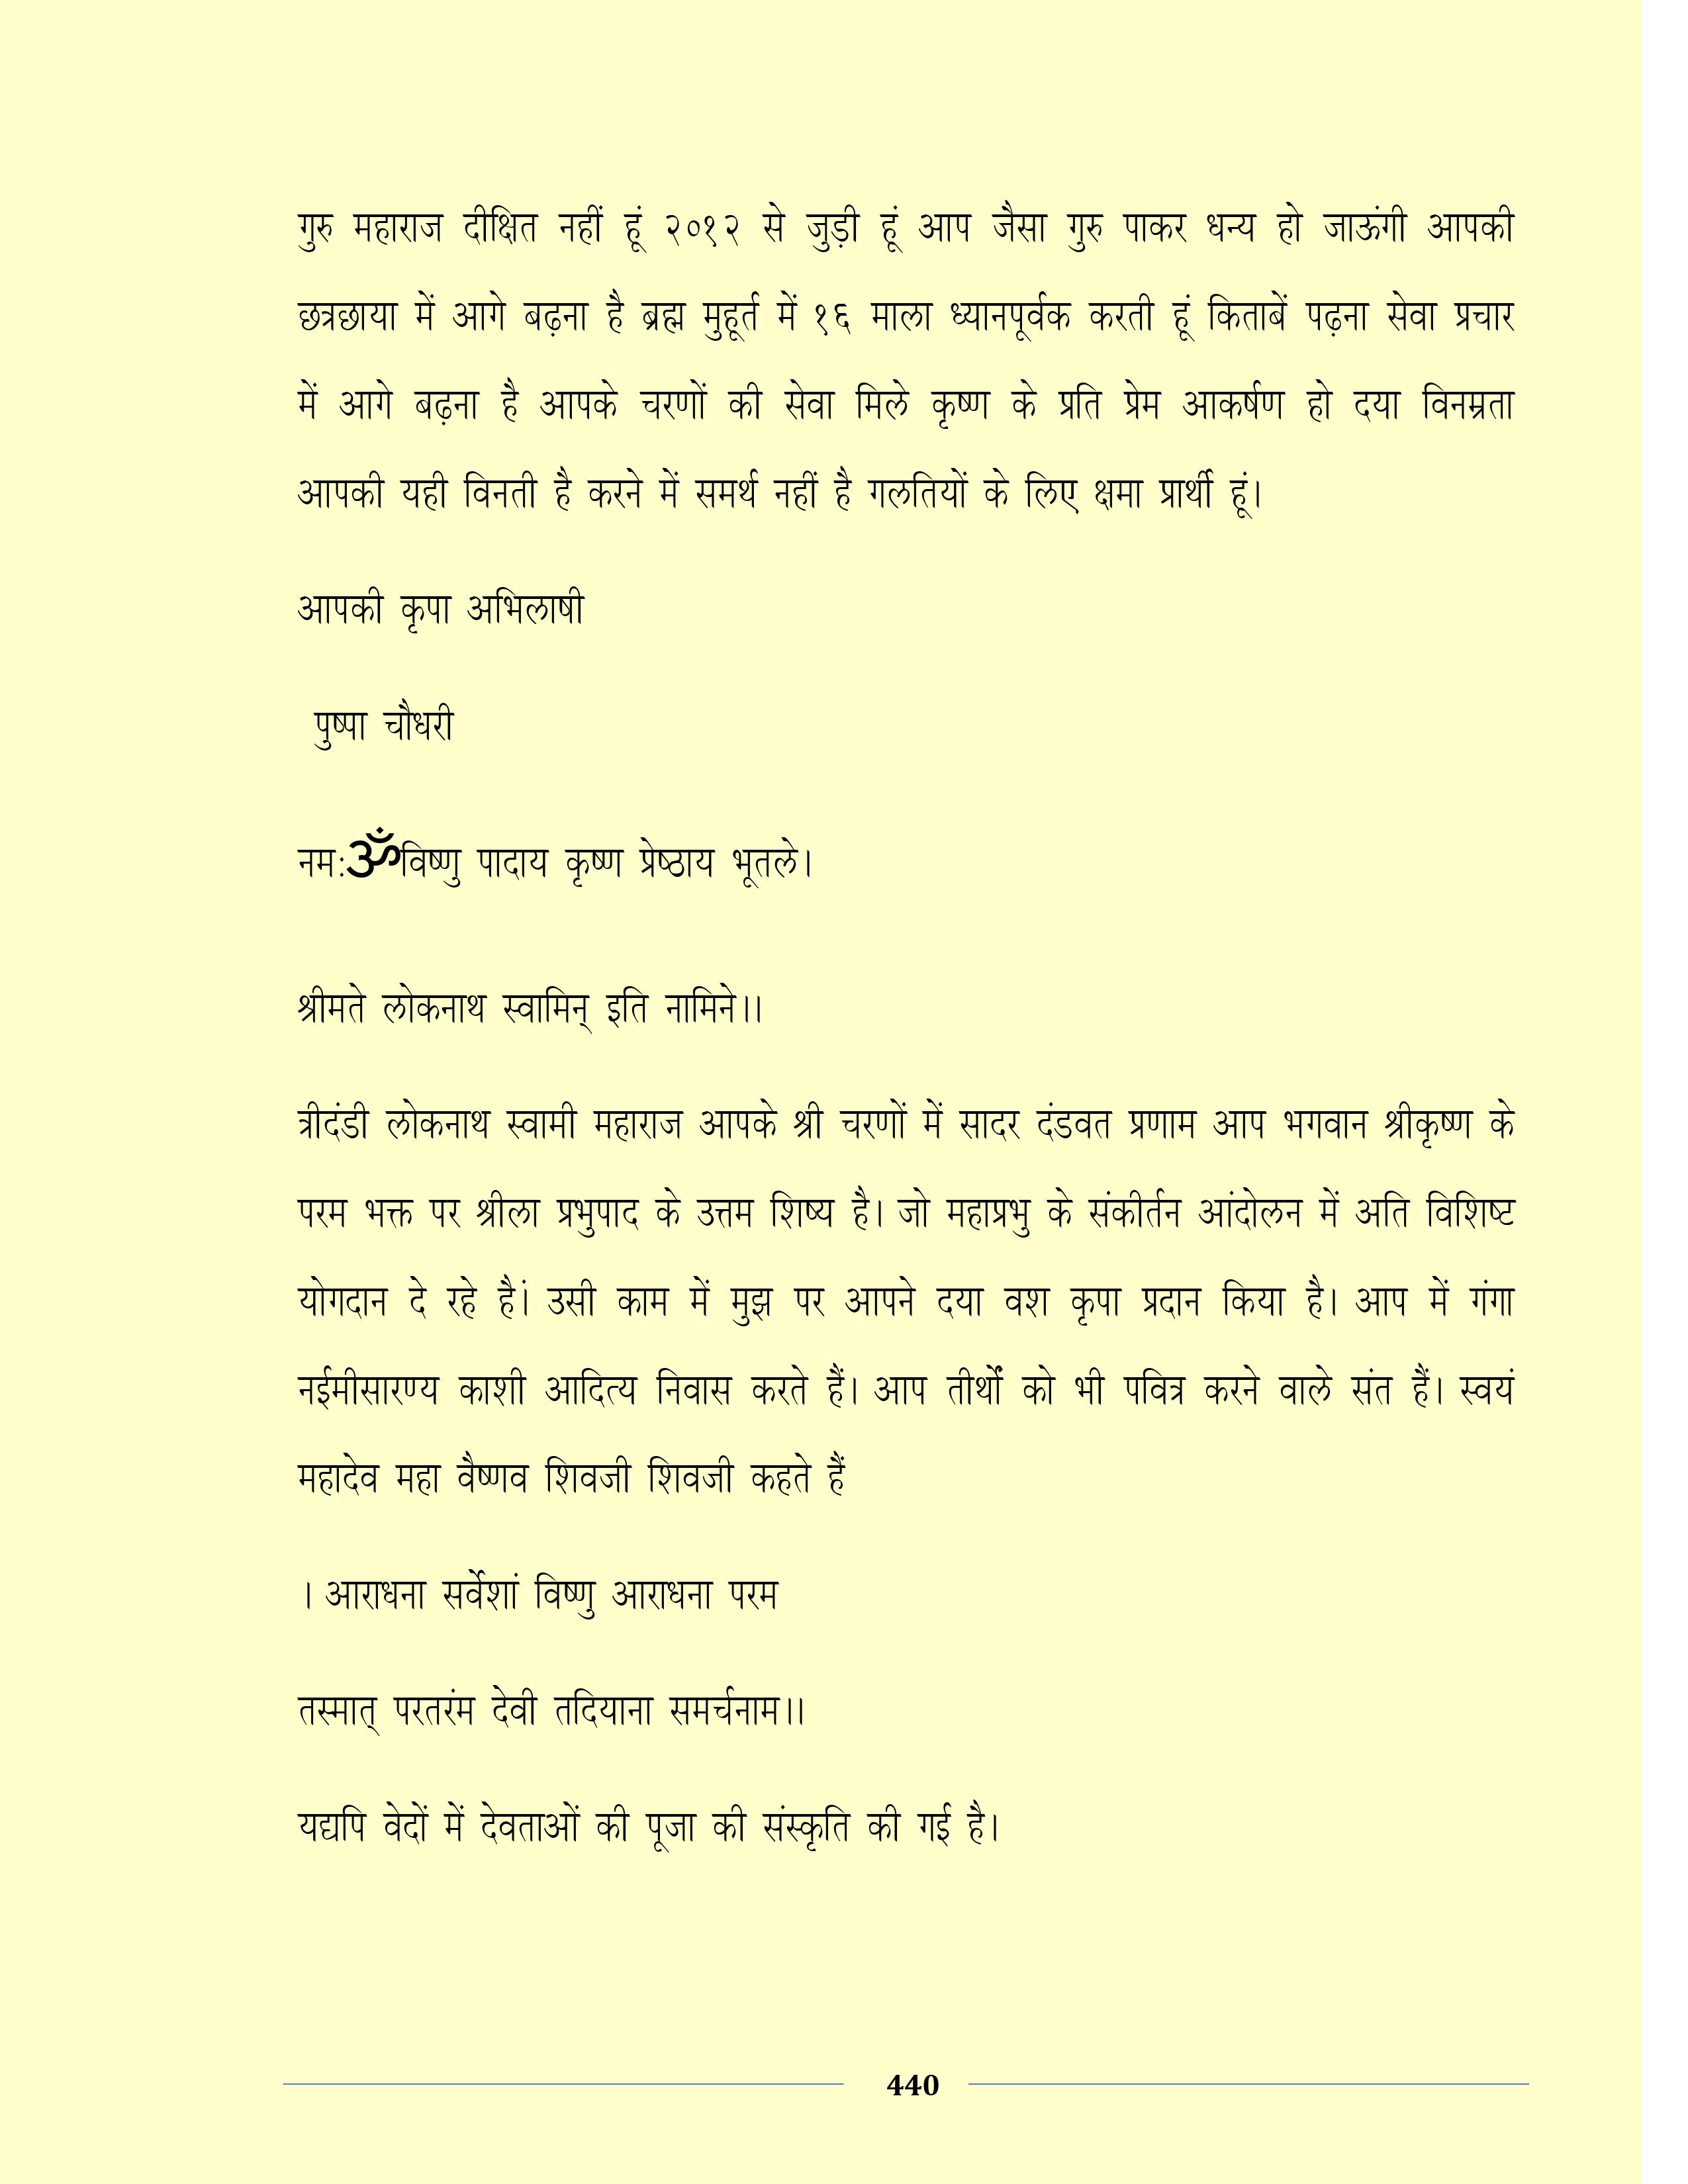 गुरु महाराज दीक्षित नहीं हूं २०१२ से जुड़ी हूं आप जैसा गुरु पाकर धन्य हो जाऊंगी आपकी
छत्रछाया में आगे बढ़ना है ब्रह्म मुहूर्त में १६ माला ध्यानपूर्वक करती हूं किताबें पढ़ना सेवा प्रचार
में आगे बढ़ना है आपके चरणों की सेवा मिले कृष्ण के प्रति प्रेम आकर्षण हो दया विनम्रता
आपकी यही विनती है करने में समर्थ नहीं है गलतियों के लिए क्षमा प्रार्थी हूं।
आपकी कृपा अभिलाषी
पुष्पा चौधरी
नमः ॐविष्णु पादाय कृष्ण प्रेष्ठाय भूतले।
श्रीमते लोकनाथ स्वामिन् इति नामिने।।
त्रीदंडी लोकनाथ स्वामी महाराज आपके श्री चरणों में सादर दंडवत प्रणाम आप भगवान श्रीकृष्ण के
परम भक्त पर श्रीला प्रभुपाद के उत्तम शिष्य है। जो महाप्रभु के संकीर्तन आंदोलन में अति विशिष्ट
योगदान दे रहे हैं। उसी काम में मुझ पर आपने दया वश कृपा प्रदान किया है। आप में गंगा
नईमीसारण्य काशी आदित्य निवास करते हैं। आप तीर्थों को भी पवित्र करने वाले संत हैं। स्वयं
महादेव महा वैष्णव शिवजी शिवजी कहते हैं
। आराधना सर्वेशां विष्णु आराधना परम
तस्मात् परतरंम देवी तदियाना समर्चनाम।।
यद्यपि वेदों में देवताओं की पूजा की संस्कृति की गई है।
440